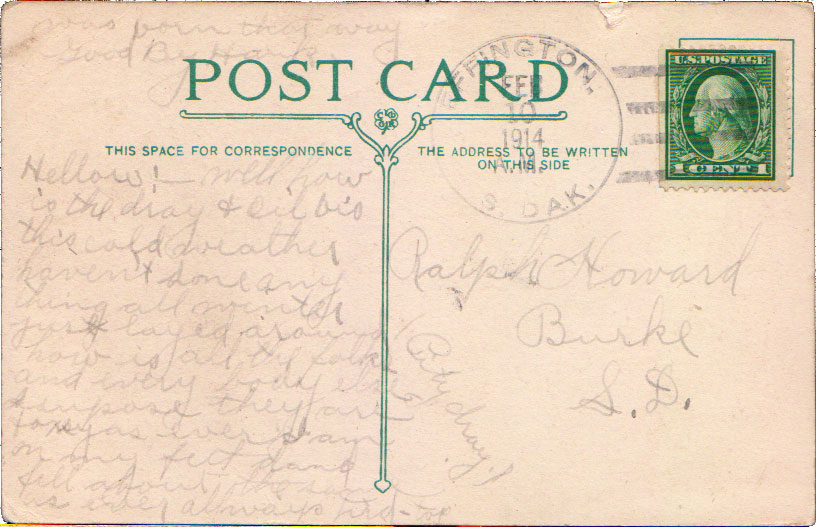 was born that way
Good By Hank
POST CARD
THIS SPACE FOR CORRESPONDENCE
THE ADDRESS TO BE WRITTEN
ON THIS SIDE
FEB
10
1914
A.M.
S. DAK.
U.S. POSTAGE
1 CENT 1
Hellow! – Well how
is the dray & oil bis
this cold weather
haven't done any
thing all winter
just layed around
how is all ty folks
and every body else
I supose they are
as ever I am
on my feet and
fell about the same
as ever allways
Ralph Howard
Burke
S.D.
City dray!